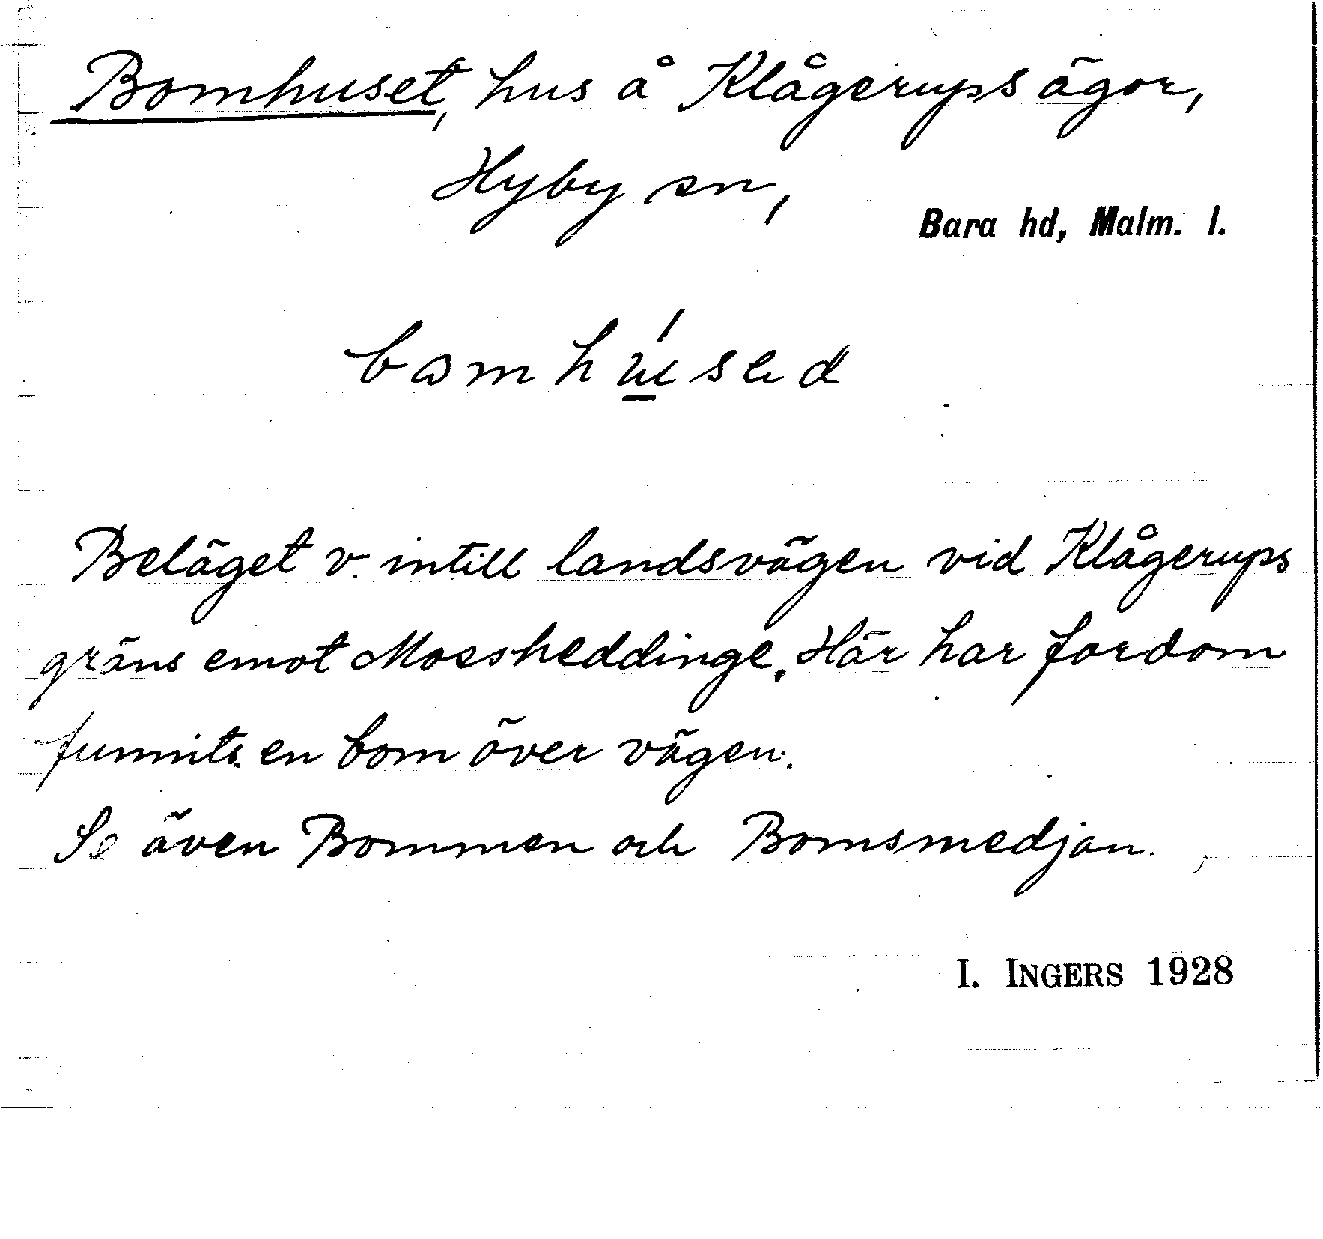 Bomhuset, hus å Klågerups ägor,
Hyby sn,
Bara hd, Malm. l.
Beläget v. intill landsvägen vid Klågerups
gräns emot Mossheddinge. Här har fordom
funnits en bom över vägen.
Se även Bommen och Bomsmedjan.
I. INGERS 1928